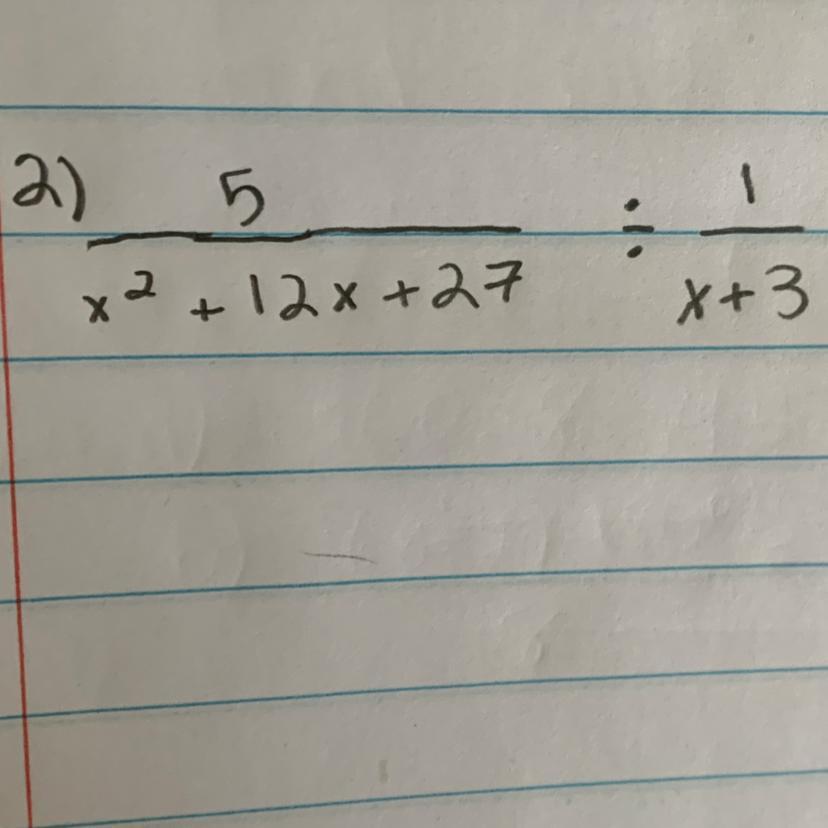 2) 5 ÷ 1
x² + 12x + 27 x + 3